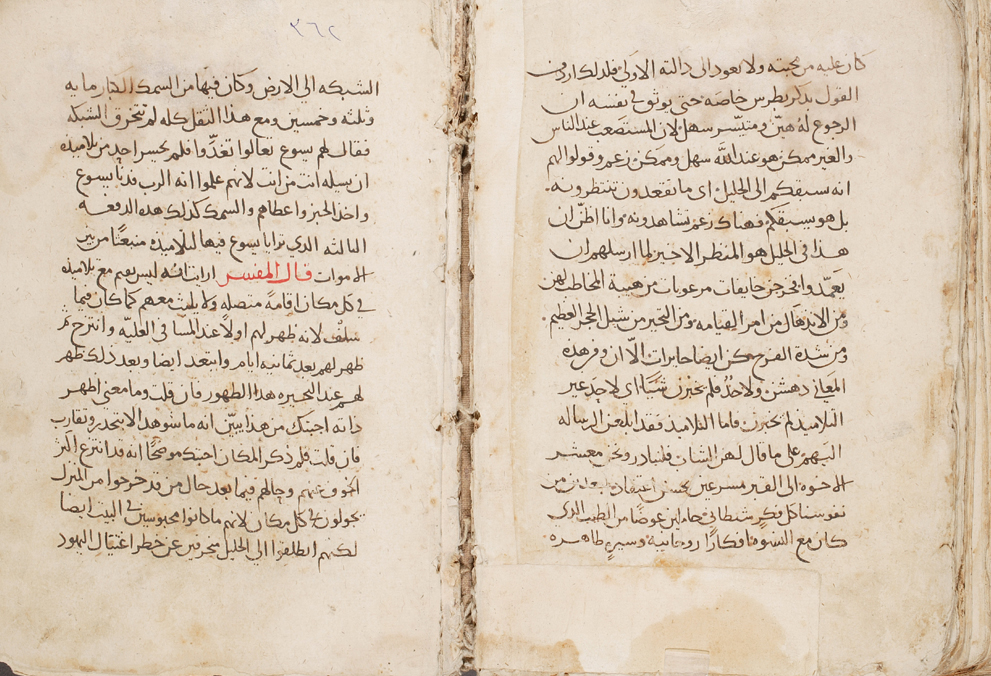 كان عليه من محبته ولا يعود الى دالته الاولى فلذلك اردف
القول بذكر بطرس خاصه حتى يوثق في نفسه ان
الرجوع له هيّن ومتيسّر سهل لان المستصعب عند الناس
والغير ممكن هو عند الله سهل وممكن زعم وقولوا لهم
انه سبقكم الى الجليل اى ما تقعدون تنتظرونه.
بل هو يسبقكم فهناك زعم تشاهدونه وانا اظنّ ان
هذا في الجليل هو المنظر الاخير لما ارسلهم ان
يعمّدوا فخرجن خايفات مرعوبات من هيبة المخاطب لهن
ومن الاندهال من امر القيامه ومن التحير من شيل الحجر العظيم.
ومن شدة الفرح كن ايضا حايرات الّا ان وفر هذه
المعاني دهشن ولاحدٌ فلم يخبرن شيًا اى لاحد غير
التلاميذ لم يخبرن فاما التلاميذ فقد ابلغن الرساله
اليهم على ما قال لهن الشاب فلنبادر ونحن معشر
الاخوه الى القبر مسرعين بحسن اعتقاد مبعدين من
نفوسنا كل فكرٍ شيطاني حاملين عوضًا من الطيب الذى
كان مع النسوه افكارًا روحانية وسيرةٍ طاهره.
٣٦٢
الشبكه الي الارض وكان فيها من السمك الكبار مايه
وثلثه وخمسين ومع هذا الثقل كله لم تتخرق الشبكه
فقال لهم يسوع تعالوا تغدّوا فلم يجسر احد من تلاميذه
ان يسله انت من انت لانهم علموا انه الرب فدنا يسوع
واخذ الخبز واعطاهم والسمك كذلك هذه الدفعه
الثالثه الذي ترايا يسوع فيها لتلاميذه منبعثًا من بين
الاموات قال المفسر ارايت انه ليس يقيم مع تلاميذه
في كل مكان اقامةً متصله ولا يلبث معهم كما كان فيما
سلف لانه ظهر لهم اولًا عند المسا في العليه وانتزح ثم
ظهر لهم بعد ثمانيه ايام وابتعد ايضا وبعد ذلك ظهر
لهم عند البحيره هذا الظهور فان قلت وما معنى اظهر
ذاته اجبتك من هذا يبيّن انه ما شوهد الا بتحدر وتقارب
فان قلت فلم ذكر المكان اجبتك موضحًا انه قد انتزع اكثر
الخوف عنهم وجالهم فيما بعد حال من قد خرجوا من المنزل
يجولون في كل مكان لانهم ما كانوا محبوسين في البيت ايضا
لكنهم انطلقوا الي الجليل منحرفين عن خطر اغتيال اليهود